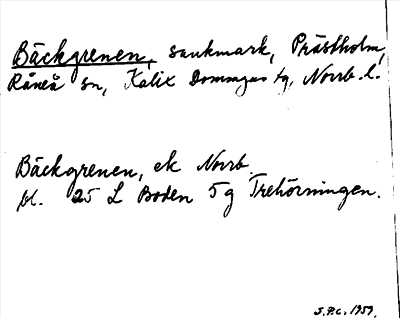 Bäckgrenen, sankmark, Prästholm,
Råneå sn, Kalix Domsagas tg, Norrb. l.
Bäckgrenen, ek Norrb.
bl. 25 L Boden 5g Trehörningen.
S.P.C. 1959.